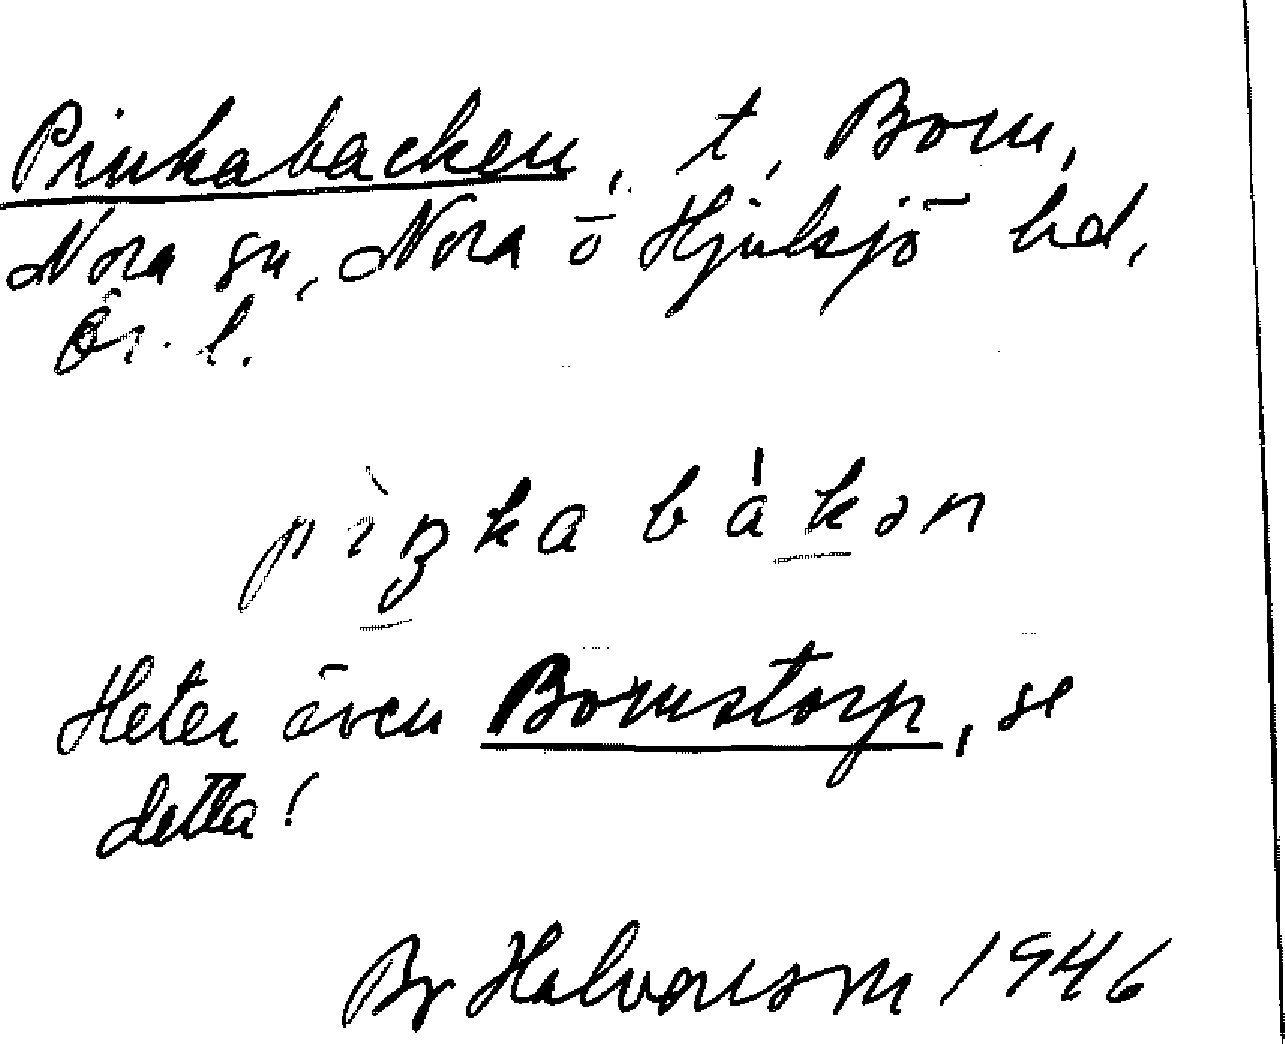 Pinkabacken, t, Born,
Nora sn, Nora ö Hjulsjö hd,
Ör. l.
pìŋka bákən
Heter även Bornstorp, se
detta!
Br Halvorsson 1946